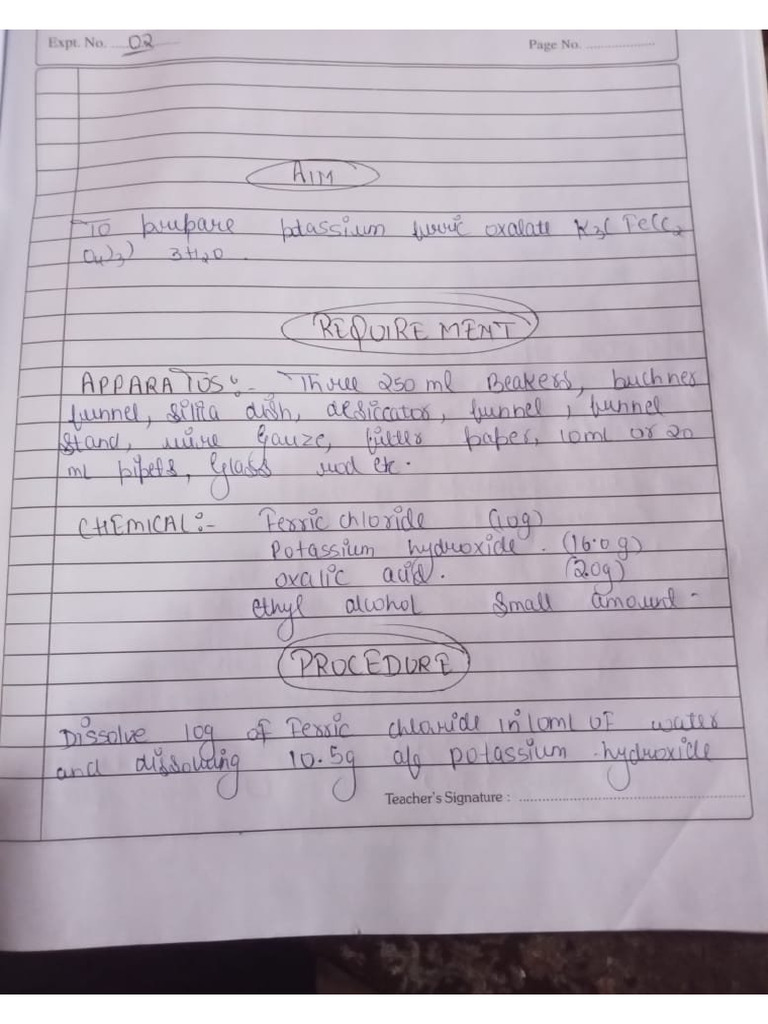 Expt. No. 02
Page No.
AIM
To prepare potassium ferric oxalate K3(Fe(C2
O4)3) 3H2O.
REQUIREMENT
APPARATUS:- Three 250 ml Beakers, buchner
funnel, silita dish, desiccator, funnel, funnel
stand, wire Gauze, filter paper, 10ml or 20
ml pipets, Glass rod etc.
CHEMICAL:- Ferric chloride (10g)
Potassium hydroxide. (16.0g)
oxalic acid. (20g)
ethyl alcohol Small amount.
PROCEDURE
Dissolve 10g of Ferric chloride in 10ml of water
and dissolving 10.5g of potassium hydroxide
Teacher's Signature :